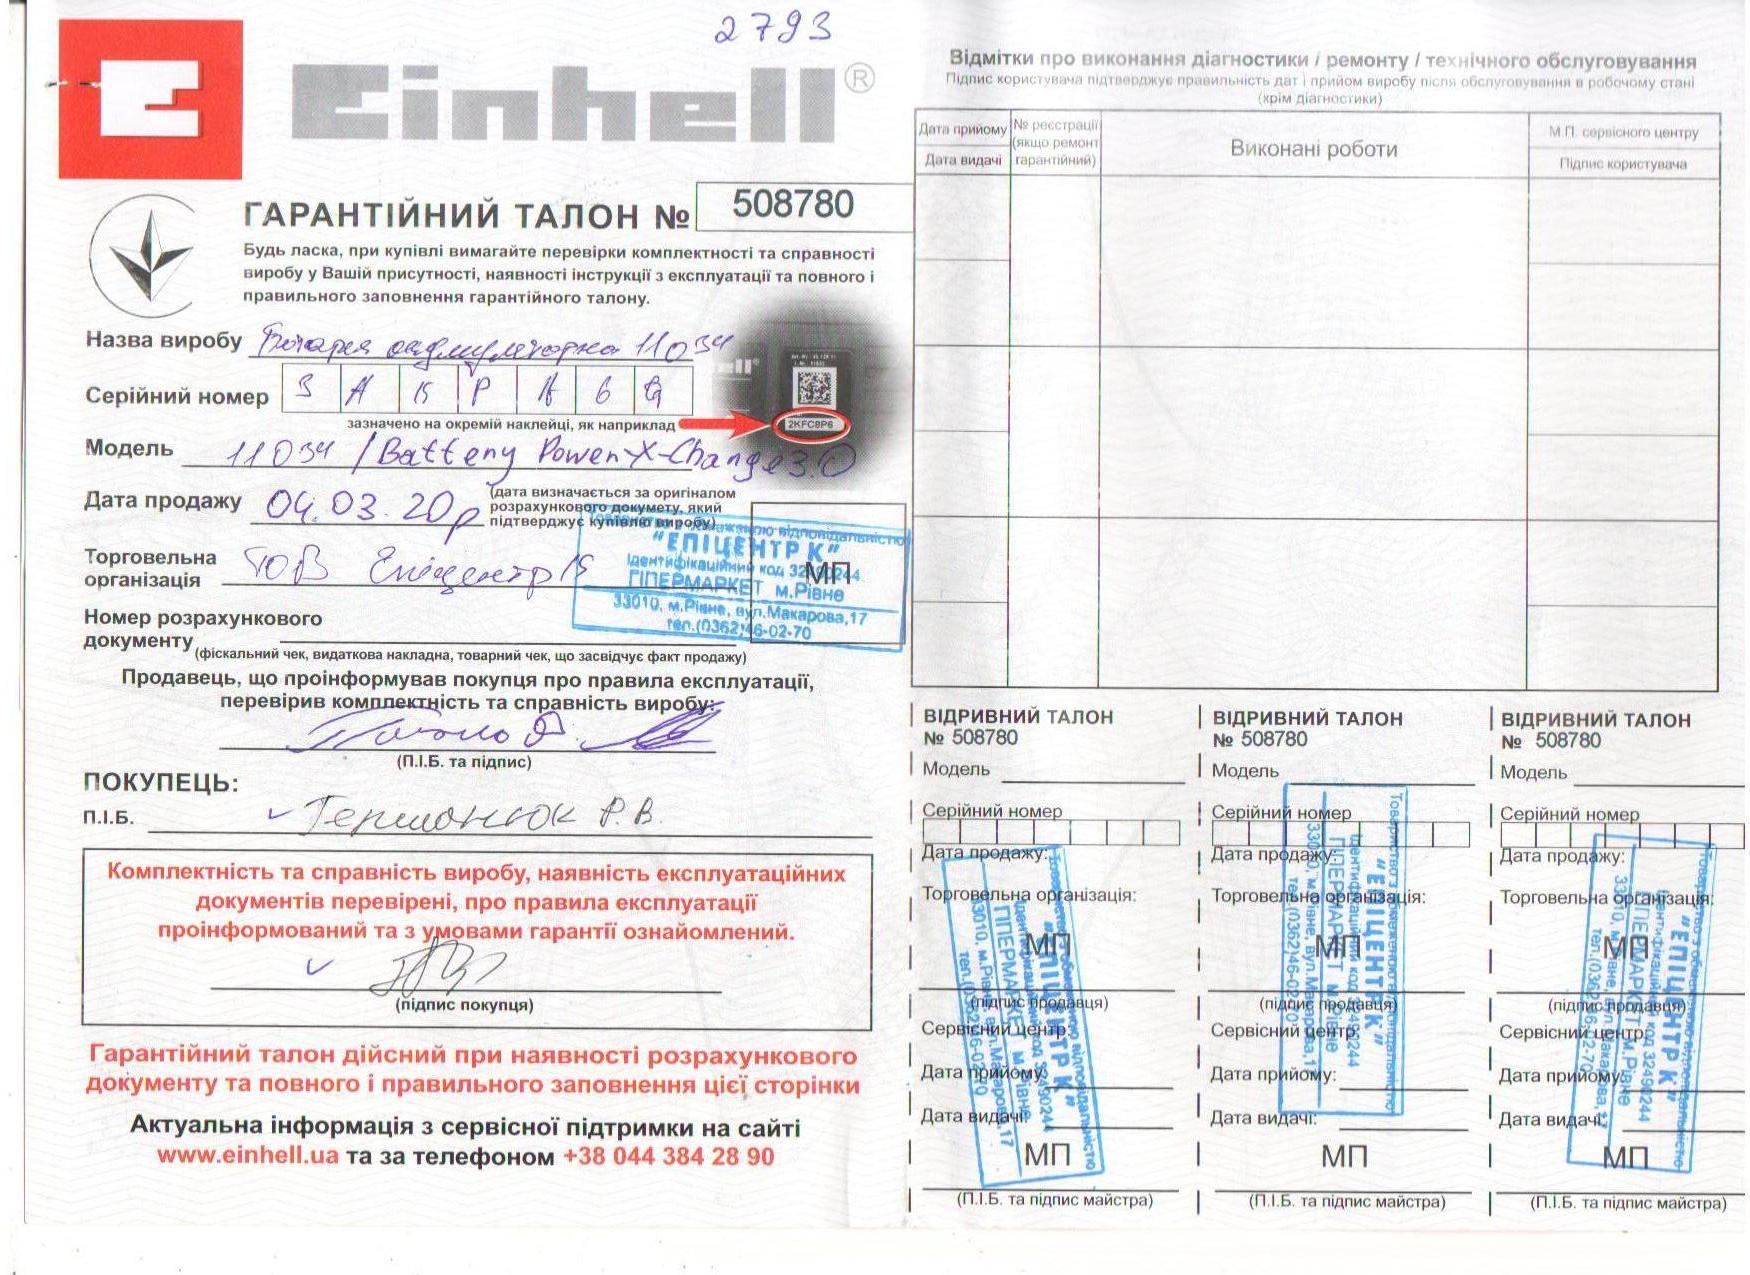 2793
Einhell®
ГАРАНТІЙНИЙ ТАЛОН № 508780
Будь ласка, при купівлі вимагайте перевірки комплектності та справності
виробу у Вашій присутності, наявності інструкції з експлуатації та повного і
правильного заповнення гарантійного талону.
Назва виробу Батарея акумуляторна 11034
Серійний номер
зазначено на окремій наклейці, як наприклад
2KFC8P6
Модель 11034 / Battery Power-X-Change 3.0
Дата продажу 04.03.20р
(дата визначається за оригіналом
розрахункового докумету, який
підтверджує купівлю виробу)
Торговельна
організація ТОВ Епіцентр К
МП
Товариство з обмеженою відповідальністю
"ЕПІЦЕНТР К"
Ідентифікаційний код 32490244
ГІПЕРМАРКЕТ м.Рівне
33010, м.Рівне, вул.Макарова,17
тел.(0362)46-02-70
Номер розрахункового
документу
(фіскальний чек, видаткова накладна, товарний чек, що засвідчує факт продажу)
Продавець, що проінформував покупця про правила експлуатації,
перевірив комплектність та справність виробу:
(П.І.Б. та підпис)
ПОКУПЕЦЬ:
П.І.Б. Германюк Р.В.
Комплектність та справність виробу, наявність експлуатаційних
документів перевірені, про правила експлуатації
проінформований та з умовами гарантії ознайомлений.
(підпис покупця)
Гарантійний талон дійсний при наявності розрахункового
документу та повного і правильного заповнення цієї сторінки
Актуальна інформація з сервісної підтримки на сайті
www.einhell.ua та за телефоном +38 044 384 28 90
Відмітки про виконання діагностики / ремонту / технічного обслуговування
Підпис користувача підтверджує правильність дат і прийом виробу після обслуговування в робочому стані
(крім діагностики)
Дата прийому
Дата видачі
№ реєстрації
(якщо ремонт
гарантійний)
Виконані роботи
М.П. сервісного центру
Підпис користувача
ВІДРИВНИЙ ТАЛОН
№ 508780
Модель
Серійний номер
Дата продажу:
Торговельна організація:
МП
(підпис продавця)
Сервісний центр:
Дата прийому:
Дата видачі:
МП
(П.І.Б. та підпис майстра)
Товариство з обмеженою відповідальністю
"ЕПІЦЕНТР К"
Ідентифікаційний код 32490244
ГІПЕРМАРКЕТ м.Рівне
33010, м.Рівне, вул.Макарова,17
тел.(0362)46-02-70
ВІДРИВНИЙ ТАЛОН
№ 508780
Модель
Серійний номер
Дата продажу:
Торговельна організація:
МП
(підпис продавця)
Сервісний центр:
Дата прийому:
Дата видачі:
МП
(П.І.Б. та підпис майстра)
Товариство з обмеженою відповідальністю
"ЕПІЦЕНТР К"
Ідентифікаційний код 32490244
ГІПЕРМАРКЕТ м.Рівне
33010, м.Рівне, вул.Макарова,17
тел.(0362)46-02-70
ВІДРИВНИЙ ТАЛОН
№ 508780
Модель
Серійний номер
Дата продажу:
Торговельна організація:
МП
(підпис продавця)
Сервісний центр:
Дата прийому:
Дата видачі:
МП
(П.І.Б. та підпис майстра)
Товариство з обмеженою відповідальністю
"ЕПІЦЕНТР К"
Ідентифікаційний код 32490244
ГІПЕРМАРКЕТ м.Рівне
33010, м.Рівне, вул.Макарова,17
тел.(0362)46-02-70